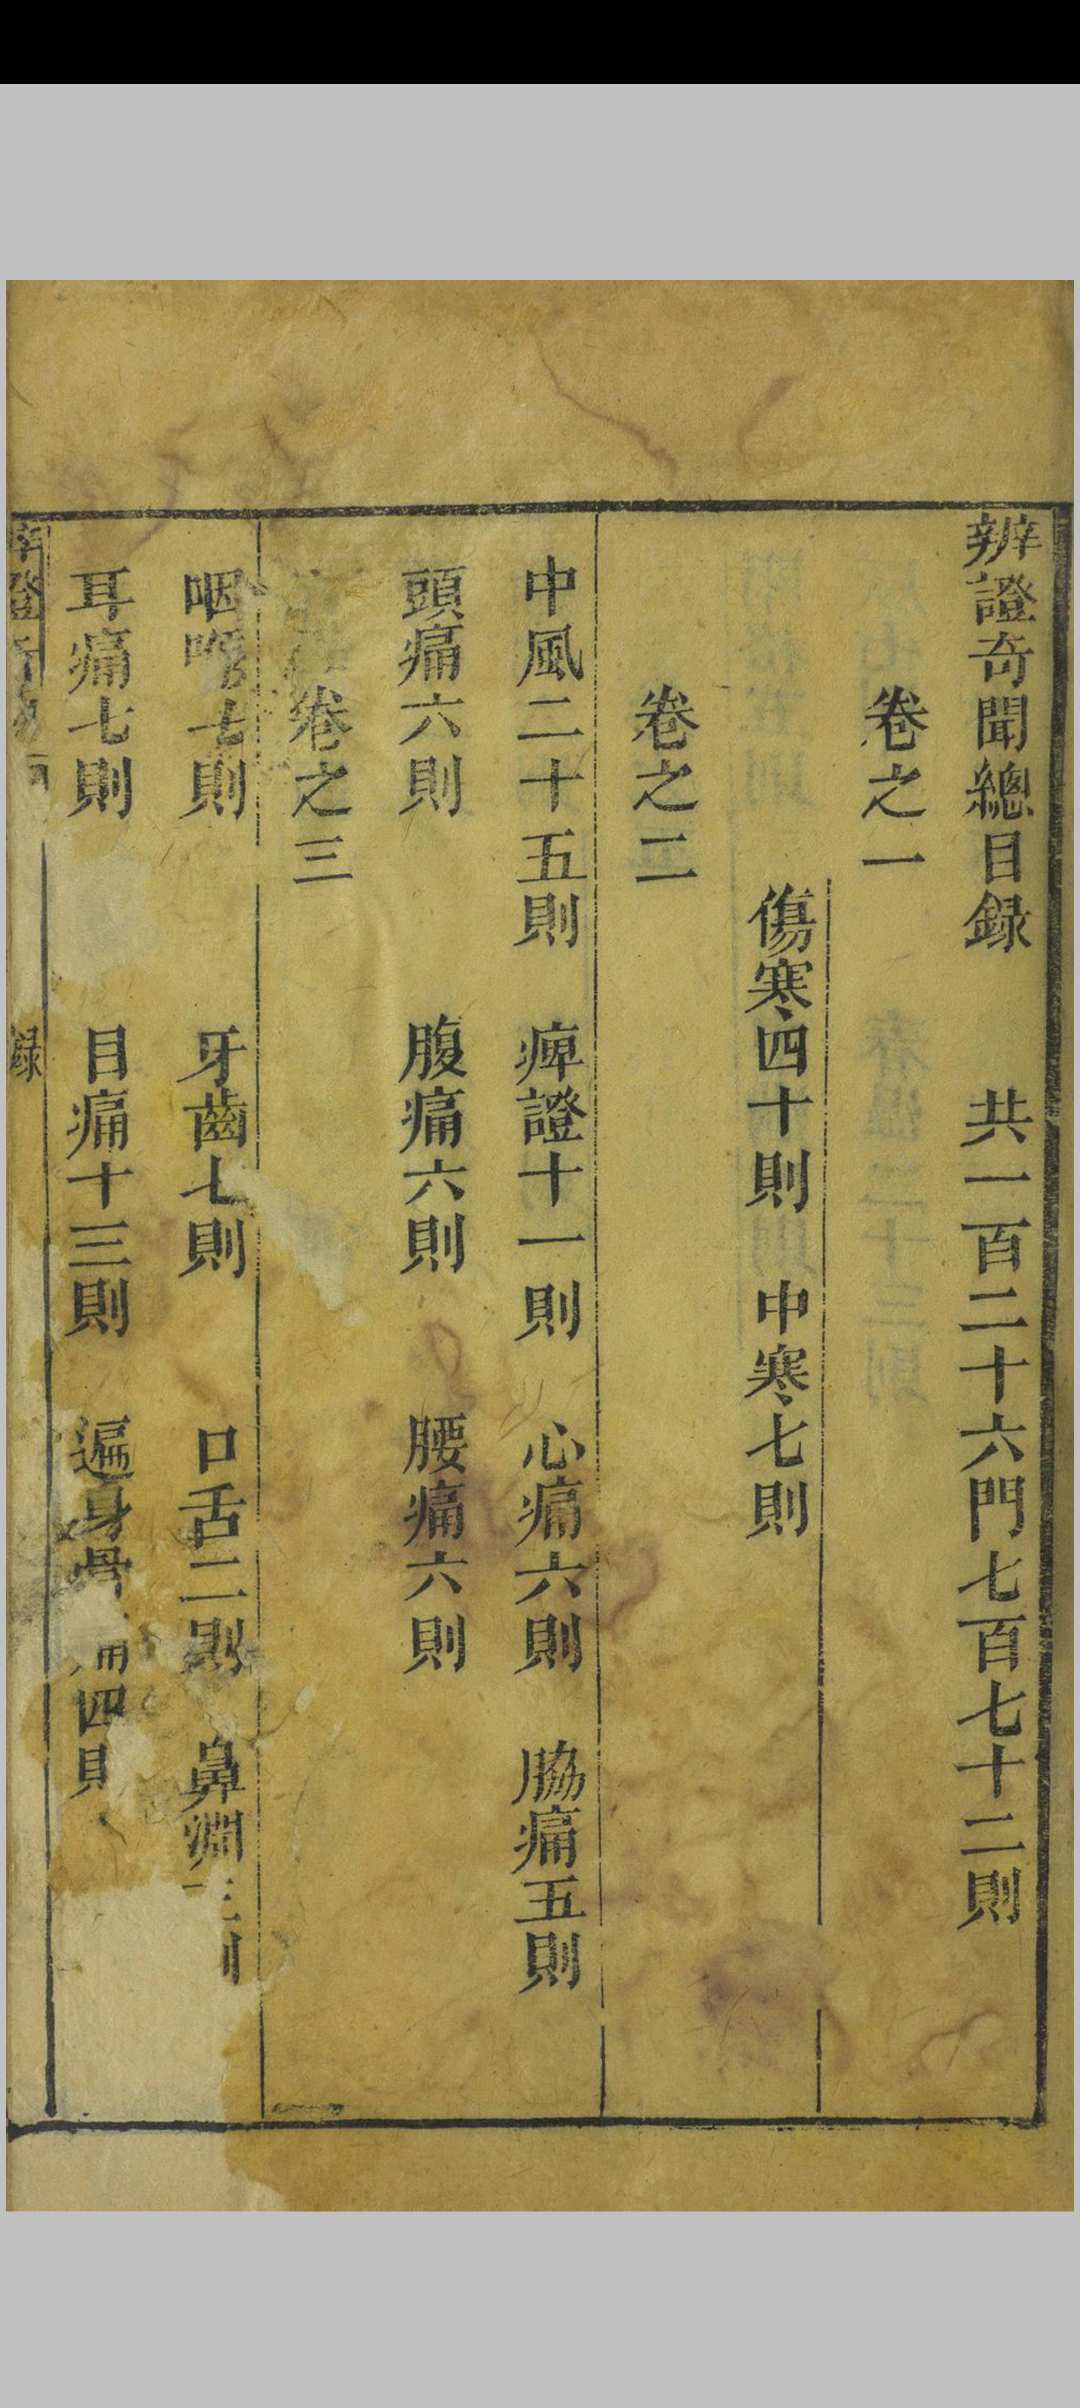 辨證奇聞總目錄 共一百二十六門七百七十二則
卷之一
傷寒四十則 中寒七則
卷之二
中風二十五則 痺證十一則 心痛六則 脇痛五則
頭痛六則 腹痛六則 腰痛六則
卷之三
咽喉七則 牙齒七則 口舌二則 鼻淵三則
耳痛七則 目痛十三則 遍身骨痛四則